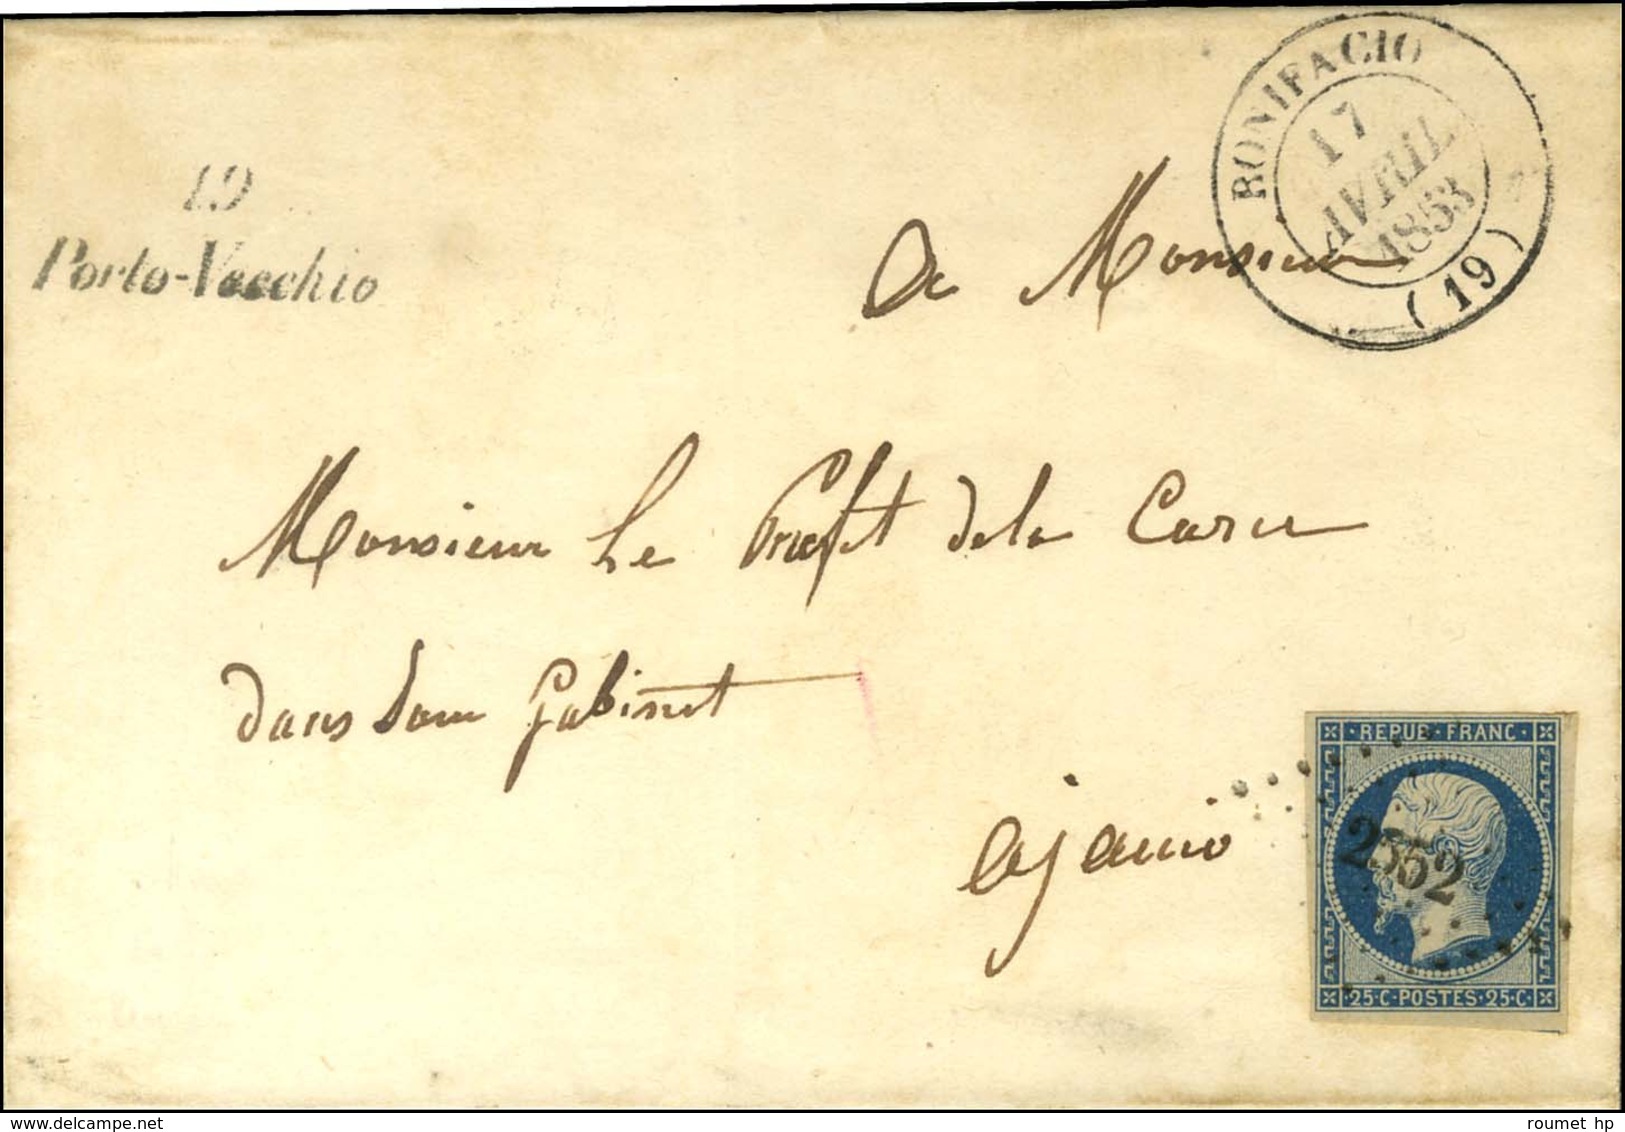 BONIFACIO
17
AVRIL
1853
(19)
19
Porto-Vecchio
A Monsieur
Monsieur Le Préfet de la Corse
dans Son Gabinet
ajaccio
REPUB FRANC
2352
25·C·POSTES·25·C·
roumet hp